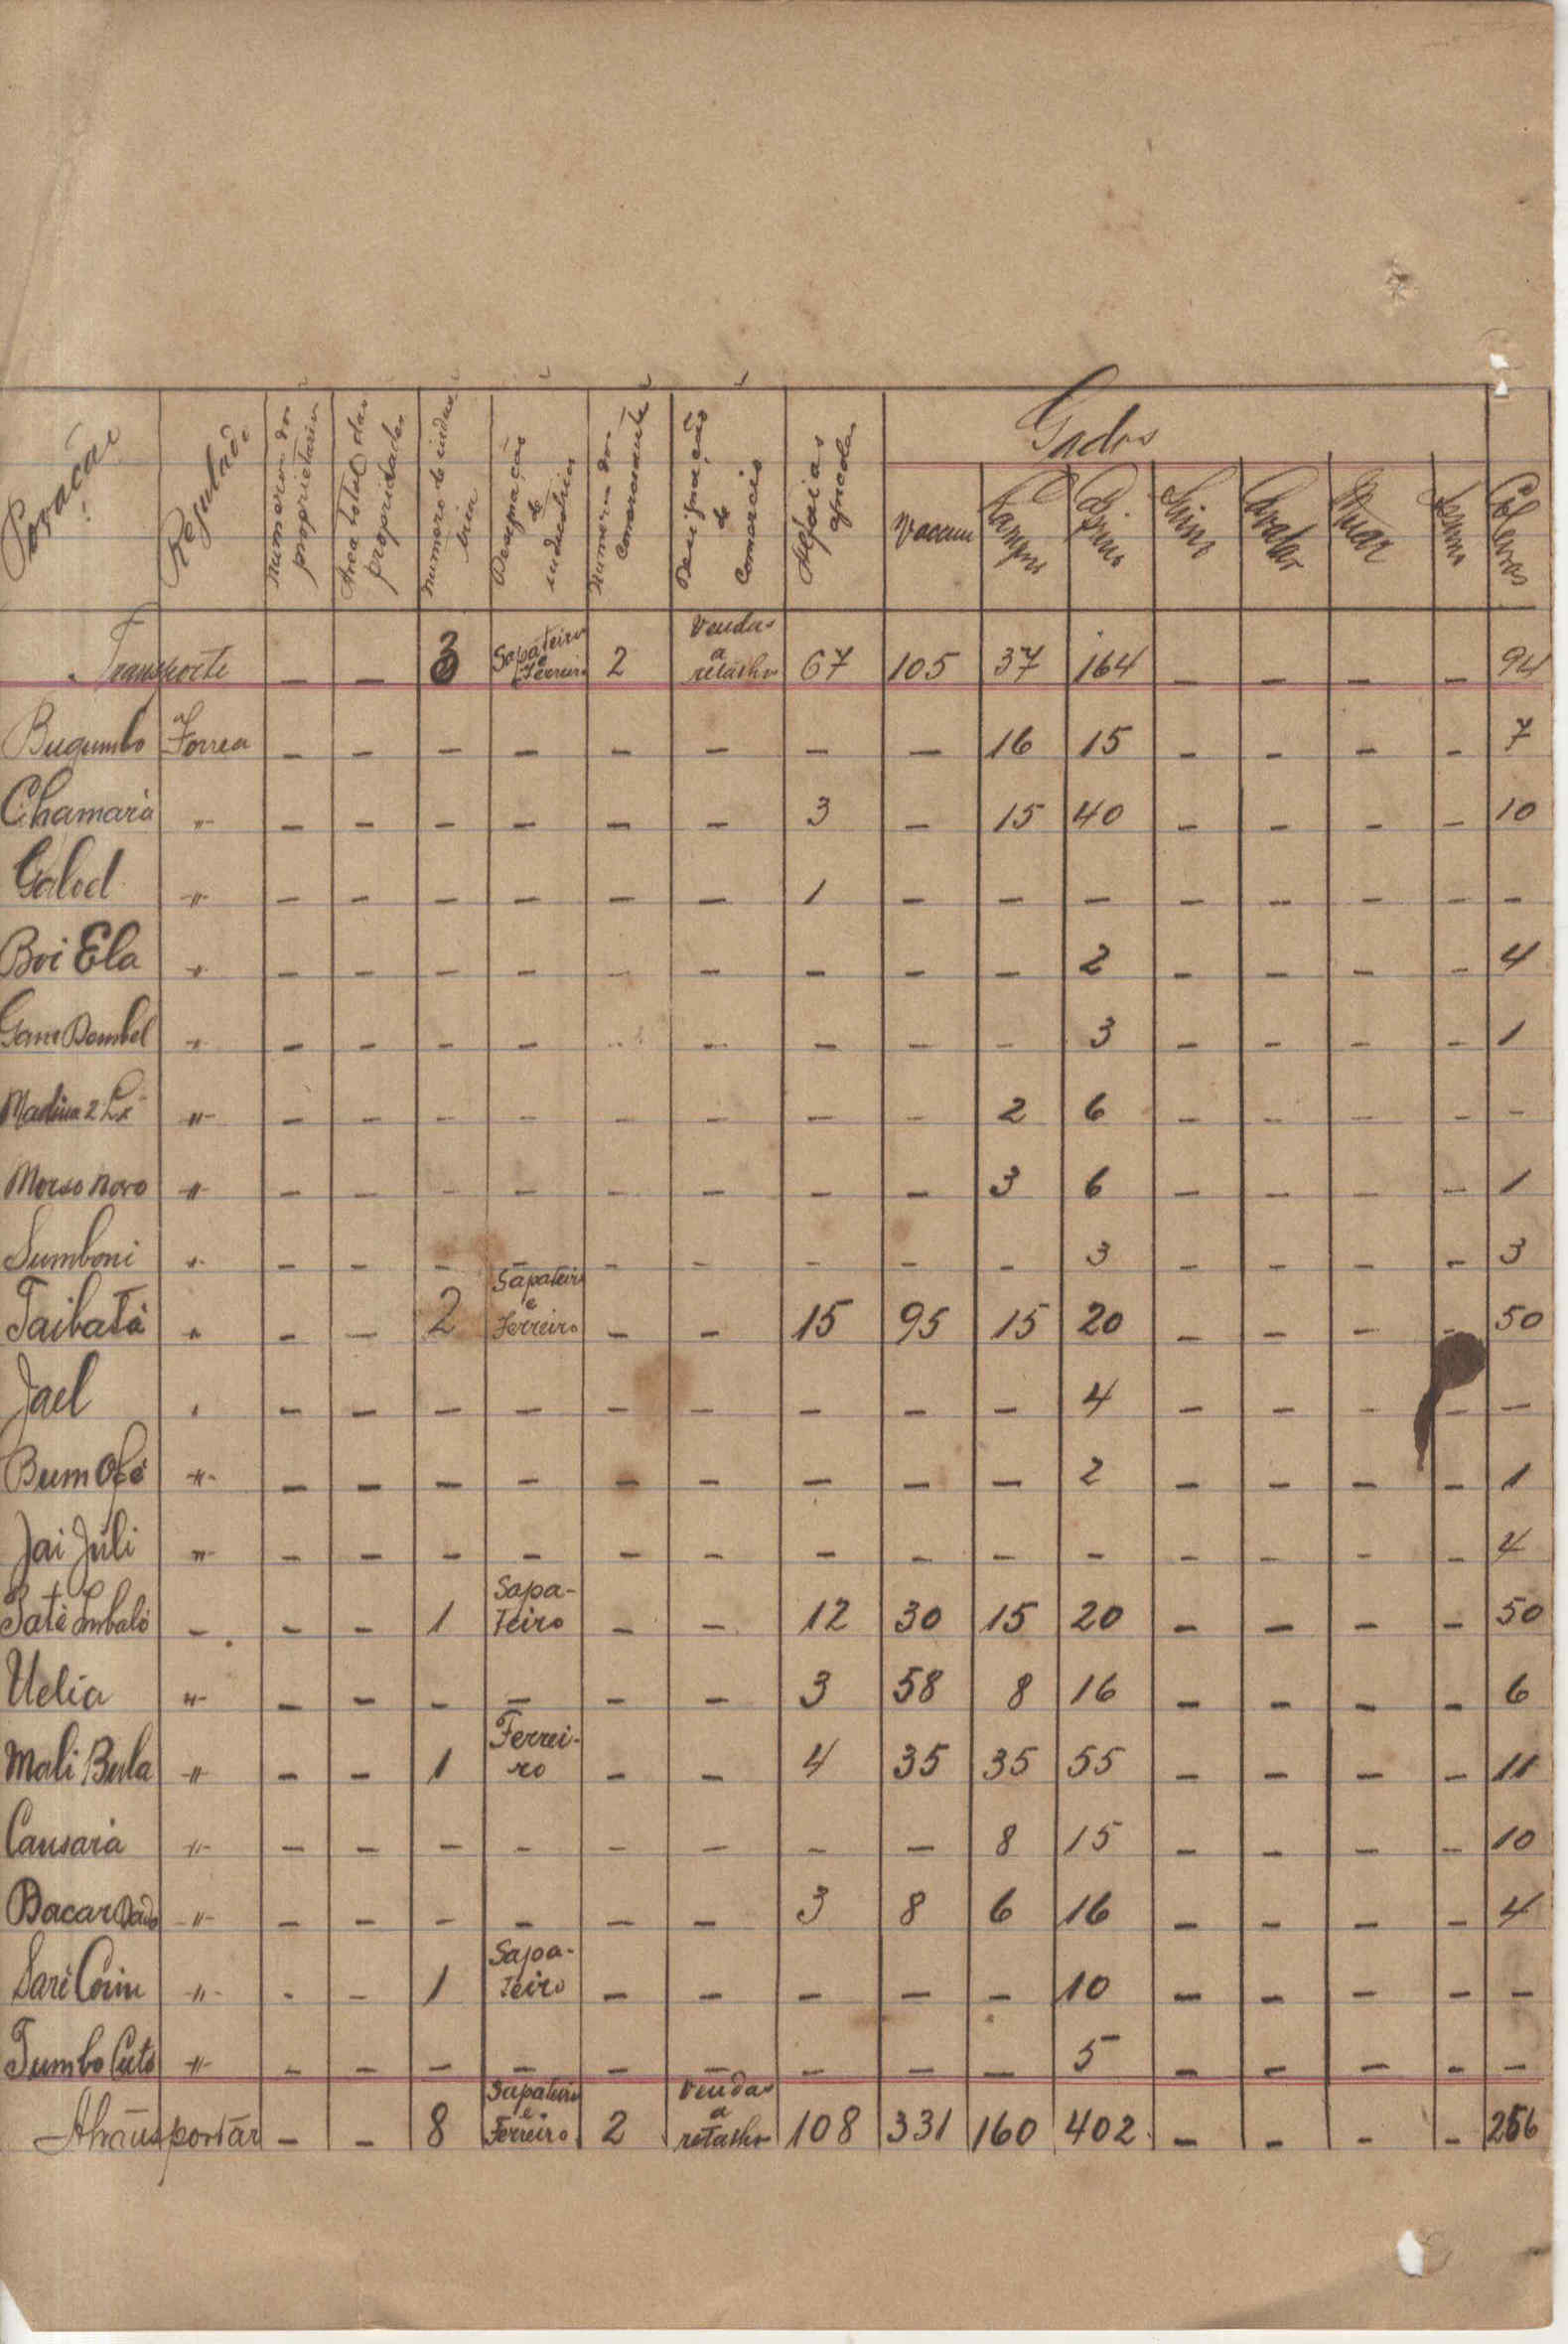 Povação Regulado Numeros dos proprietarios Area total das propriedades numero de indus tria Designação de industria Numero dos comerciante Designação de Comercio Alfaias agricolas Gados Colmeias
Vacum Lanigero Caprino Suino Cavalar Muar
Transporte — — 3 Sapateiro e Ferreiro 2 Vendas a retalho 67 105 37 164 — — — — 94
Bugumbo Forrea — — — — — — — — 16 15 — — — — 7
Chamará " — — — — — — 3 — 15 40 — — — — 10
Galod " — — — — — — 1 — — — — — — — —
Boi Ela " — — — — — — — — — 2 — — — — 4
Gam Dombel " — — — — — — — — — 3 — — — — 1
Madina 2 " — — — — — — — — 2 6 — — — — —
Morso novo " — — — — — — — — 3 6 — — — — 1
Sumboni " — — — — — — — — — 3 — — — — 3
Taibatá " — — 2 Sapateiro e Ferreiro — — 15 95 15 20 — — — — 50
Jael " — — — — — — — — — 4 — — — — —
Bum Ofé " — — — — — — — — — 2 — — — — 1
Jai Juli " — — — — — — — — — — — — — — 4
Paté Embaló — — — 1 Sapa- teiro — — 12 30 15 20 — — — — 50
Uelia " — — — — — — 3 58 8 16 — — — — 6
Mali Bula " — — 1 Ferrei- ro — — 4 35 35 55 — — — — 11
Cansará " — — — — — — — — 8 15 — — — — 10
Bacar Dado " — — — — — — 3 8 6 16 — — — — 4
Saré " — — 1 Sapa- teiro — — — — — 10 — — — — —
Tumbo Cuto " — — — — — — — — — 5 — — — — —
A transportar — — 8 Sapateiro e Ferreiro 2 Vendas a retalho 108 331 160 402 — — — — 256